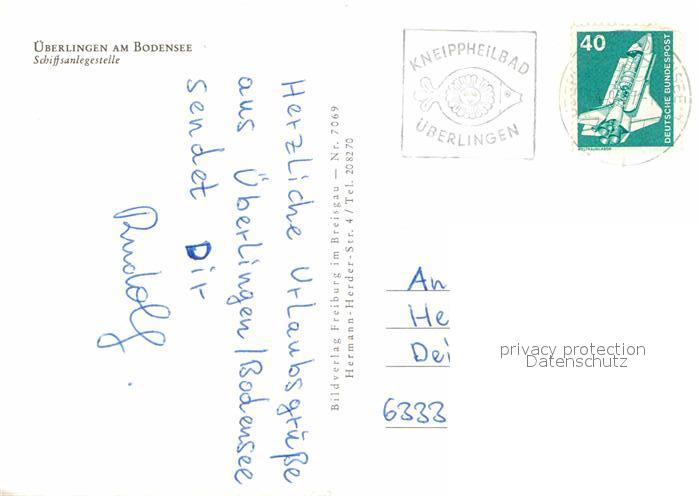 ÜBERLINGEN AM BODENSEE
Schiffsanlegestelle
Herzliche Urlaubsgrüße
aus Überlingen/Bodensee
sendet Dir
Rudolf.
Bildverlag Freiburg im Breisgau — Nr. 7069
Hermann-Herder-Str. 4 / Tel. 208270
KNEIPPHEILBAD
ÜBERLINGEN
40
DEUTSCHE BUNDESPOST
WELTRAUMLABOR
An
He
Dei
6333
privacy protection
Datenschutz